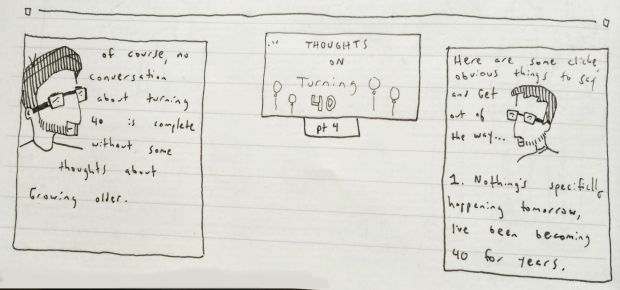 of course, no
conversation
about turning
40 is complete
without some
thoughts about
Growing older.
THOUGHTS
ON
Turning
40
pt 4
Here are some cliche
obvious things to say
and Get
out of
the way...
1. Nothing's specifically
happening tomorrow,
I've been becoming
40 for years.